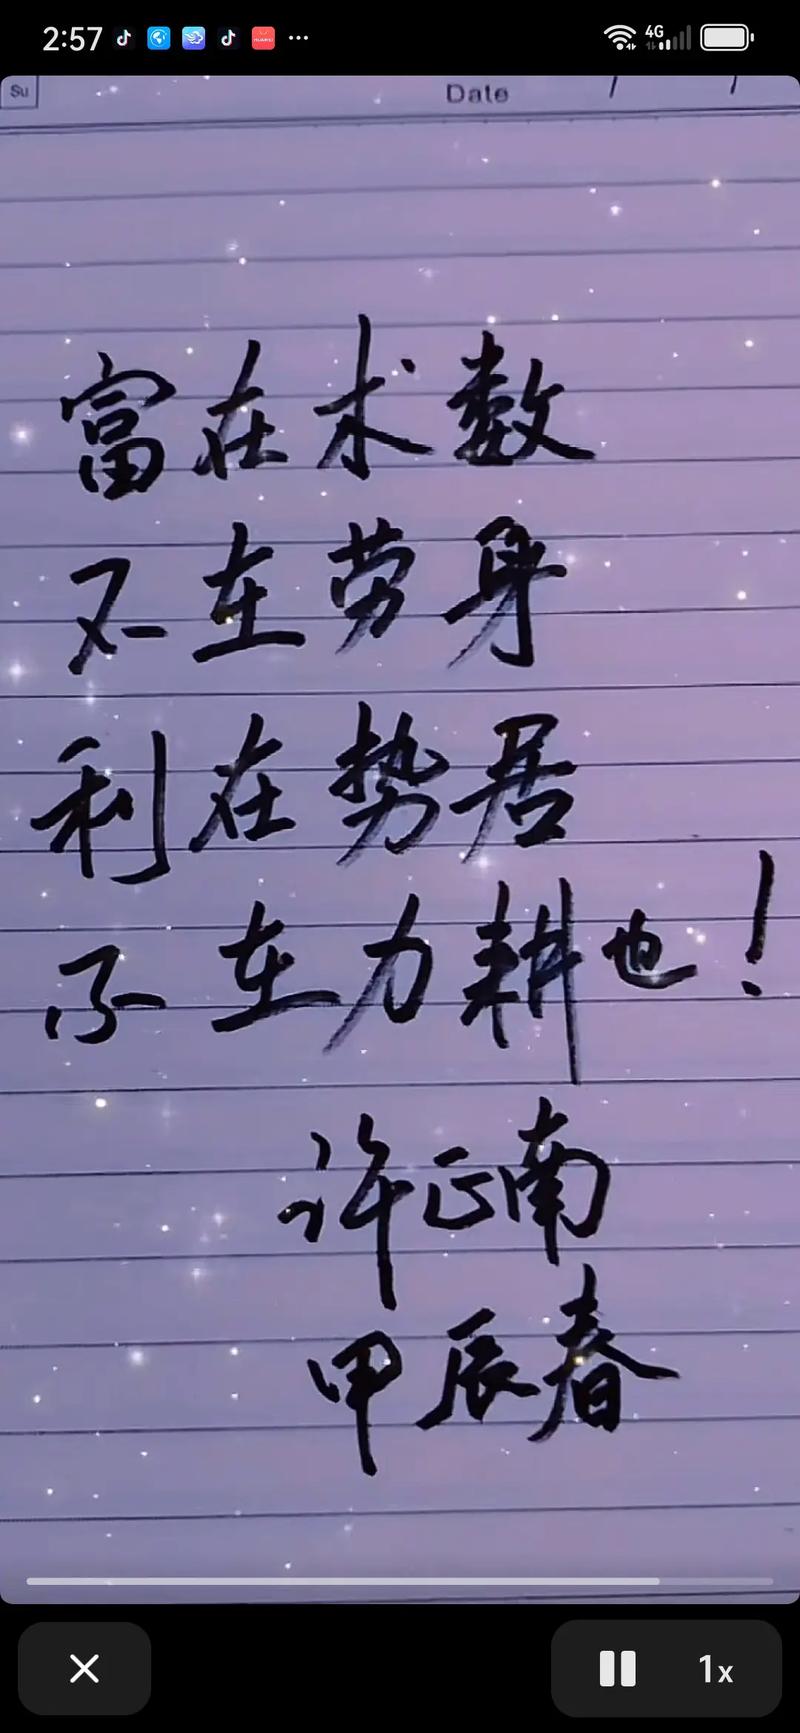 2:57
4G
Su
Date / /
富在术数
不在劳身
利在势居
不在力耕也！
许正南
甲辰春
1x